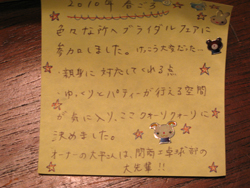 2010年 春ごろ
色々な所へブライダルフェアに
参加しました。けっこう大変だった…
・親身に対応してくれる点
・ゆっくりとパーティーが行える空間
が気に入り、ここクオリークオリーに
決めました。
オーナーの大平さんは、
大先輩!!